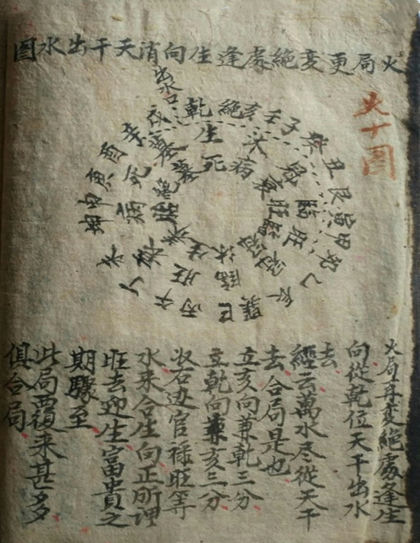 火局更变絕處逢生向消天干出水图
火十图
出水口
乾
絕亥
壬子
癸丑
艮寅
甲卯
乙
辰
巽巳
丙午
丁
未
坤申
庚酉
辛
戌
生
死
病
衰
旺
臨
火局再变絕處逢生
向從乾位天干出水
去
經云萬水尽從天干
去合局是也
立亥向兼乾三分
立乾向兼亥三分
收右边官祿旺等
水来合生向正所謂
旺去迎生富貴之
期驟至
此局覆来甚多
俱合局